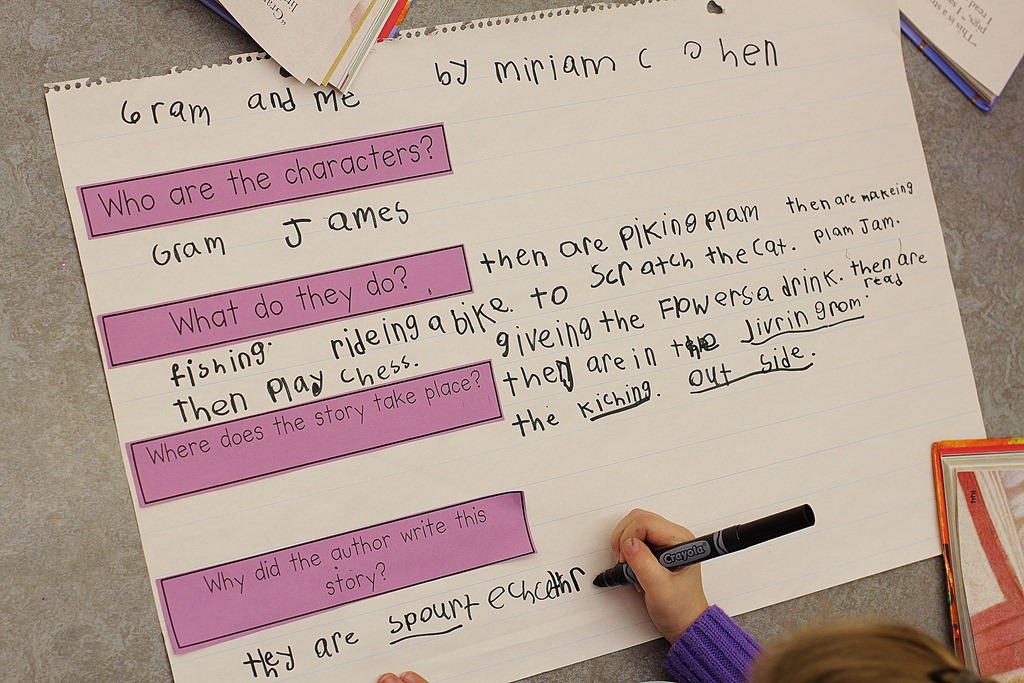 Gram and me by miriam c ohen
Who are the characters?
Gram James
What do they do?
then are piking plam then are makeing
fishing. rideing a bike. to scratch the cat. plam Jam.
then play chess. giveing the Flowers a drink. then are
read
Where does the story take place?
they are in the livrin grom.
the kiching. out side.
Why did the author write this
story?
they are spourt
Crayola